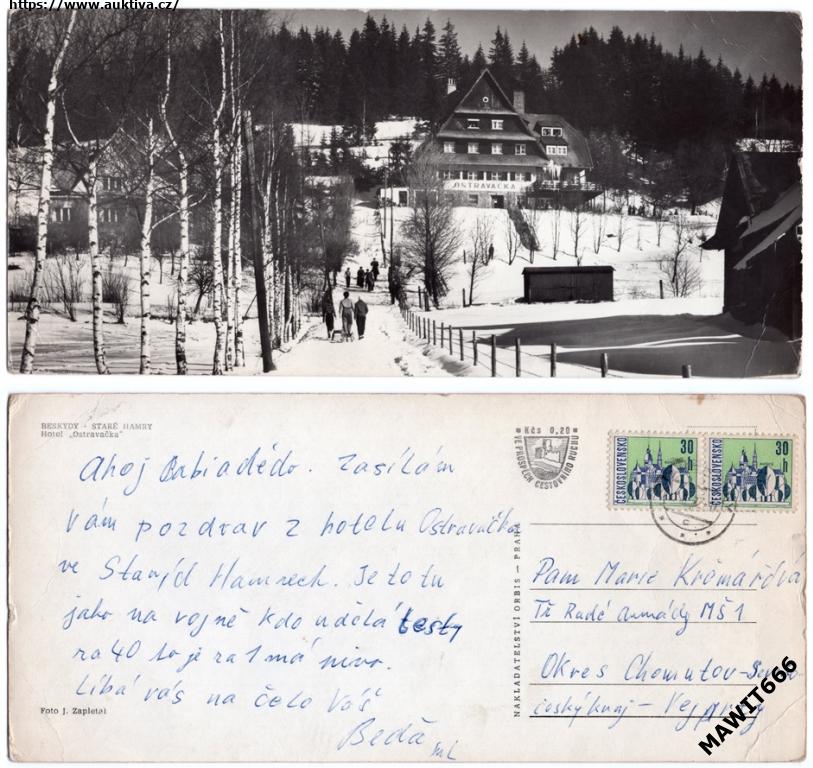 https://www.auktiva.cz/
OSTRAVAČKA
BESKYDY - STARÉ HAMRY
Hotel „Ostravačka"
Ahoj Babiadědo. Zasílám
vám pozdrav z hotelu Ostravačka
ve Starýd Hamrech. Je to tu
jako na vojně kdo udělá testy
za 40 to je za 1 má pivo.
Líbá vás na čelo Váš
Beďa
Foto J. Zapletal
Kčs 0,20
VE PROSPĚCH CESTOVNÍHO RUCHU
ČESKOSLOVENSKO 30 h
ČESKOSLOVENSKO 30 h
NAKLADATELSTVÍ ORBIS — PRAHA
Pam Marie Krčmářová
Tř Rudé armády MŠ 1
Okres Chomutov-
českýkraj — Vejprty
MAWIT666